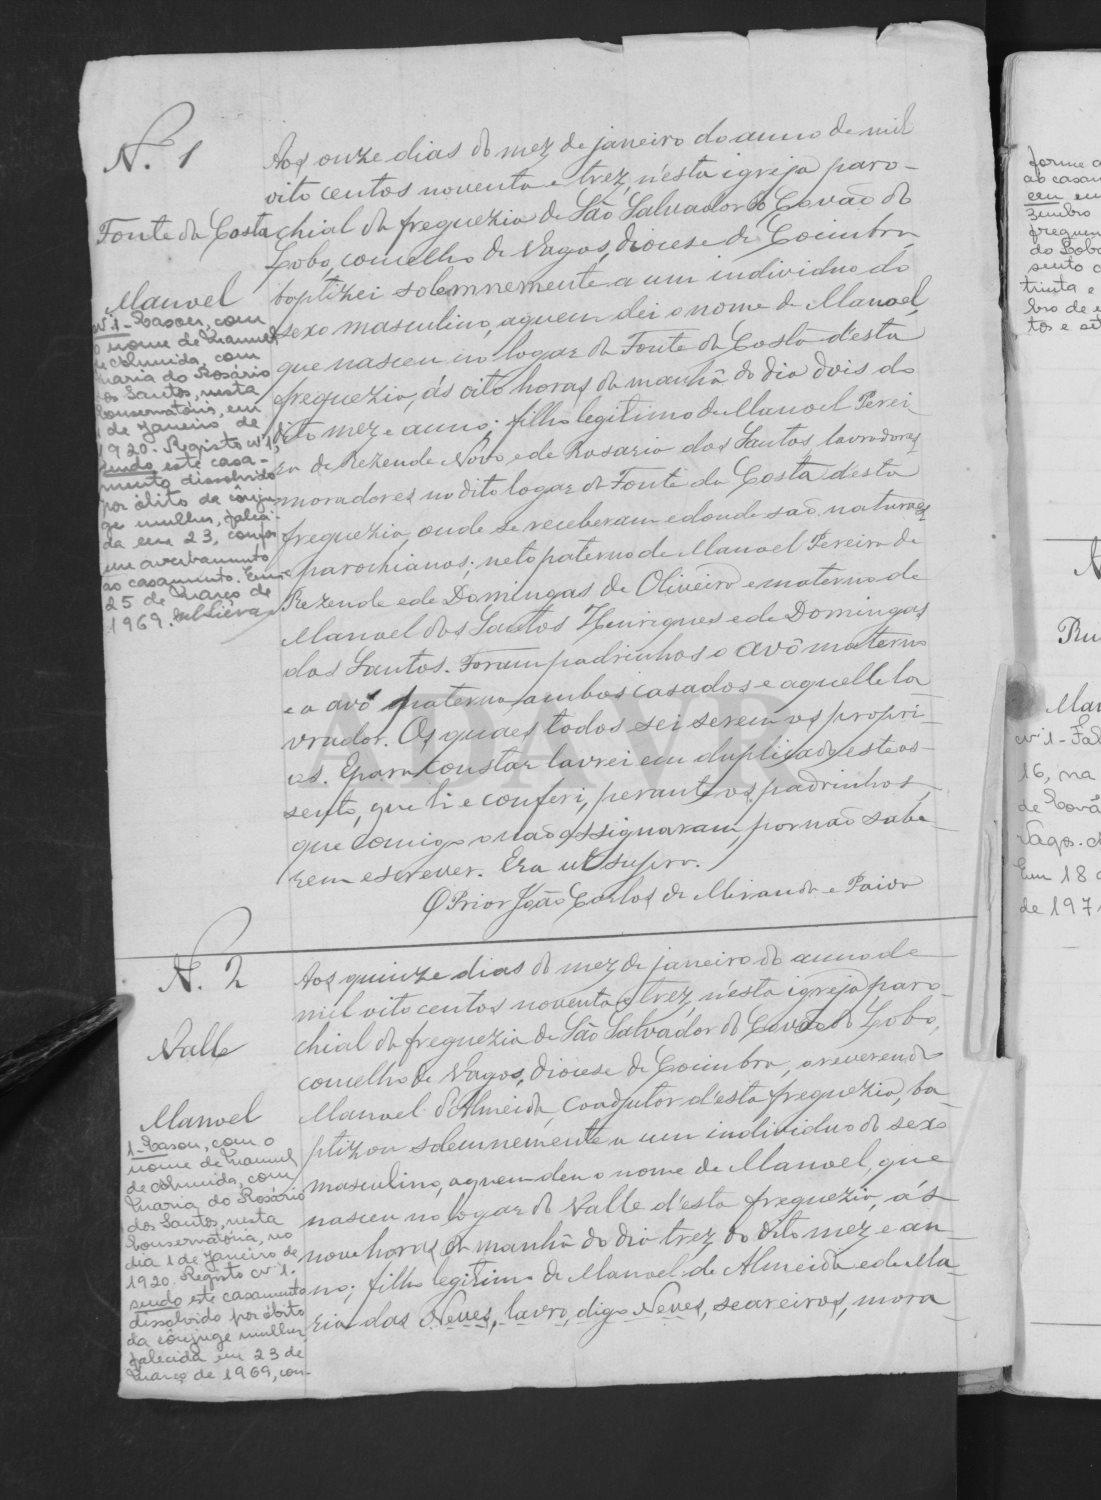 N. 1
Fonte da Costa
Manoel
Nº 1 - Casou, com
o nome de Manuel
de Almeida, com
Maria do Rosário
dos Santos, nesta
Conservatória, em
de Janeiro de
1920. Registo nº 1,
sendo este casa-
mento dissolvido
por óbito da cônju-
ge mulher, faleci-
da em 23, confor-
me averbamento
ao casamento. Em
25 de Março de
1969.
Aos onze dias do mez de janeiro do anno de mil
oito centos noventa e trez, n'esta igreja paro-
chial da freguezia de São Salvador do Covão do
Lobo, concelho de Vagos, diocese de Coimbra,
baptizei solemnemente a um individuo do
sexo masculino, a quem dei o nome de Manoel,
que nasceu no logar da Fonte da Costa d'esta
freguezia, ás oito horas da manhã do dia dois do
dito mez e anno; filho legitimo de Manoel Perei-
ra de Rezende Novo e de Rosaria dos Santos, lavradores,
moradores no dito logar da Fonte da Costa d'esta
freguezia, onde se receberam e donde são naturaes
e parochianos; neto paterno de Manoel Pereira de
Rezende e de Domingas de Oliveira e materno de
Manoel dos Santos Henriques e de Domingas
dos Santos. Foram padrinhos o avô materno
e a avó paterna ambos casados e aquelle la-
vrador. Os quaes todos sei serem os propri-
os. E para constar lavrei em duplicado este as-
sento, que li e conferi, perante os padrinhos,
que comigo o não assignaram, por não sabe-
rem escrever. Era ut supra.
O Prior João Carlos de Miranda e Paiva
N. 2
Valle
Manoel
1 - Casou, com o
nome de Manuel
de Almeida, com
Maria do Rosário
dos Santos, nesta
Conservatória, no
dia 1 de Janeiro de
1920. Registo nº 1.
sendo este casamento
dissolvido por óbito
da cônjuge mulher,
falecida em 23 de
Março de 1969, con-
Aos quinze dias do mez de janeiro do anno de
mil oito centos noventa e trez, n'esta igreja paro-
chial da freguezia de São Salvador do Covão do Lobo,
concelho de Vagos, diocese de Coimbra, o reverendo
Manoel d'Almeida, coadjutor d'esta freguezia, ba-
ptizou solemnemente a um individuo do sexo
masculino, a quem deu o nome de Manoel, que
nasceu no logar do Valle d'esta freguezia, ás
nove horas da manhã do dia trez do dito mez e an-
no; filho legitimo de Manoel de Almeida e de Ma-
ria das Neves, lavra, digo Neves, seareiros, mora-
ADAVR
forme a
ao casam
em
zembro
fregue
do Lobo
sento
trinta e
bro de
tos e
N
Ru
Man
nº 1 - Fal
16, na
de Cová
Vagos.
Em 18
de 197